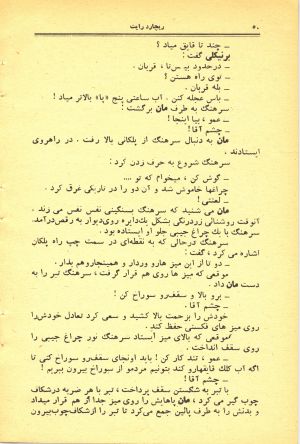 ۵۰ ریچارد رایت
ـ چند تا قایق میاد ؟
برنیکلی گفت :
ـ درحدود بیس‌تا ، قربان .
ـ توی راه هستن ؟
ـ بله قربان .
ـ باس عجله کنن . آب ساعتی پنج «پا» بالاتر میاد !
سرهنگ به طرف مان برگشت :
ـ عمو ، بیا اینجا !
ـ چشم آقا !
مان به دنبال سرهنگ از پلکانی بالا رفت . در راهروی
ایستادند .
سرهنگ شروع به حرف زدن کرد :
ـ گوش کن ، میخوام که تو ....
چراغها خاموش شد و آن دو را در تاریکی غرق کرد .
ـ لعنتی !
مان می شنید که سرهنگ بسنگینی نفس نفس می زند .
آنوقت روشنائی زردرنگی بشکل یك‌دایره روی‌دیوار به رقص‌درآمد.
سرهنگ با یك چراغ جیبی جلو او ایستاده بود .
سرهنگ درحالی که به نقطه‌ای در سمت چپ راه پلکان
اشاره می کرد ، گفت :
ـ دو تا از این میز هارو وردار و همینجاروهم بذار .
موقعی که میز ها روی هم قرار گرفت ، سرهنگ تبر را به
دست مان داد .
ـ برو بالا و سقف‌رو سوراخ کن !
ـ چشم آقا .
خودش را برحمت بالا کشید و سعی کرد تعادل خودش‌را
روی میز های فکسنی حفظ کند .
موقعی که بالای میز ایستاد سرهنگ نور چراغ جیبی را
روی سقف انداخت .
ـ عمو ، تند کار کن ! باید اونجای سقف‌رو سوراخ کنی تا
اگه آب کلك قایقهارو کند بتونیم مردمو از سوراخ بیرون ببریم !
ـ چشم آقا !
با تبر به شکستن سقف پرداخت ، تبر با هر ضربه درشکاف
چوب گیر می کرد ، مان پاهایش را روی میز جدا از هم قرار میداد
و بدنش را به طرف پائین جمع می‌کرد تا تبر را ازشکاف‌چوب‌بیرون